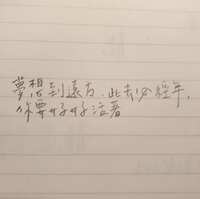 夢想到遠方，此去必經年，
你要好好活著